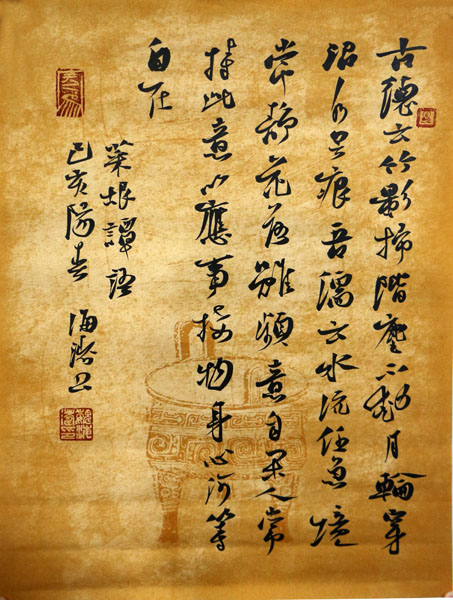 古德云竹影掃階塵不動月輪穿
沼水无痕吾儒云水流任急境
常静花落雖頻意自閑人常
持此意以應事接物身心何等
自在
菜根譚語
己亥陽春 海